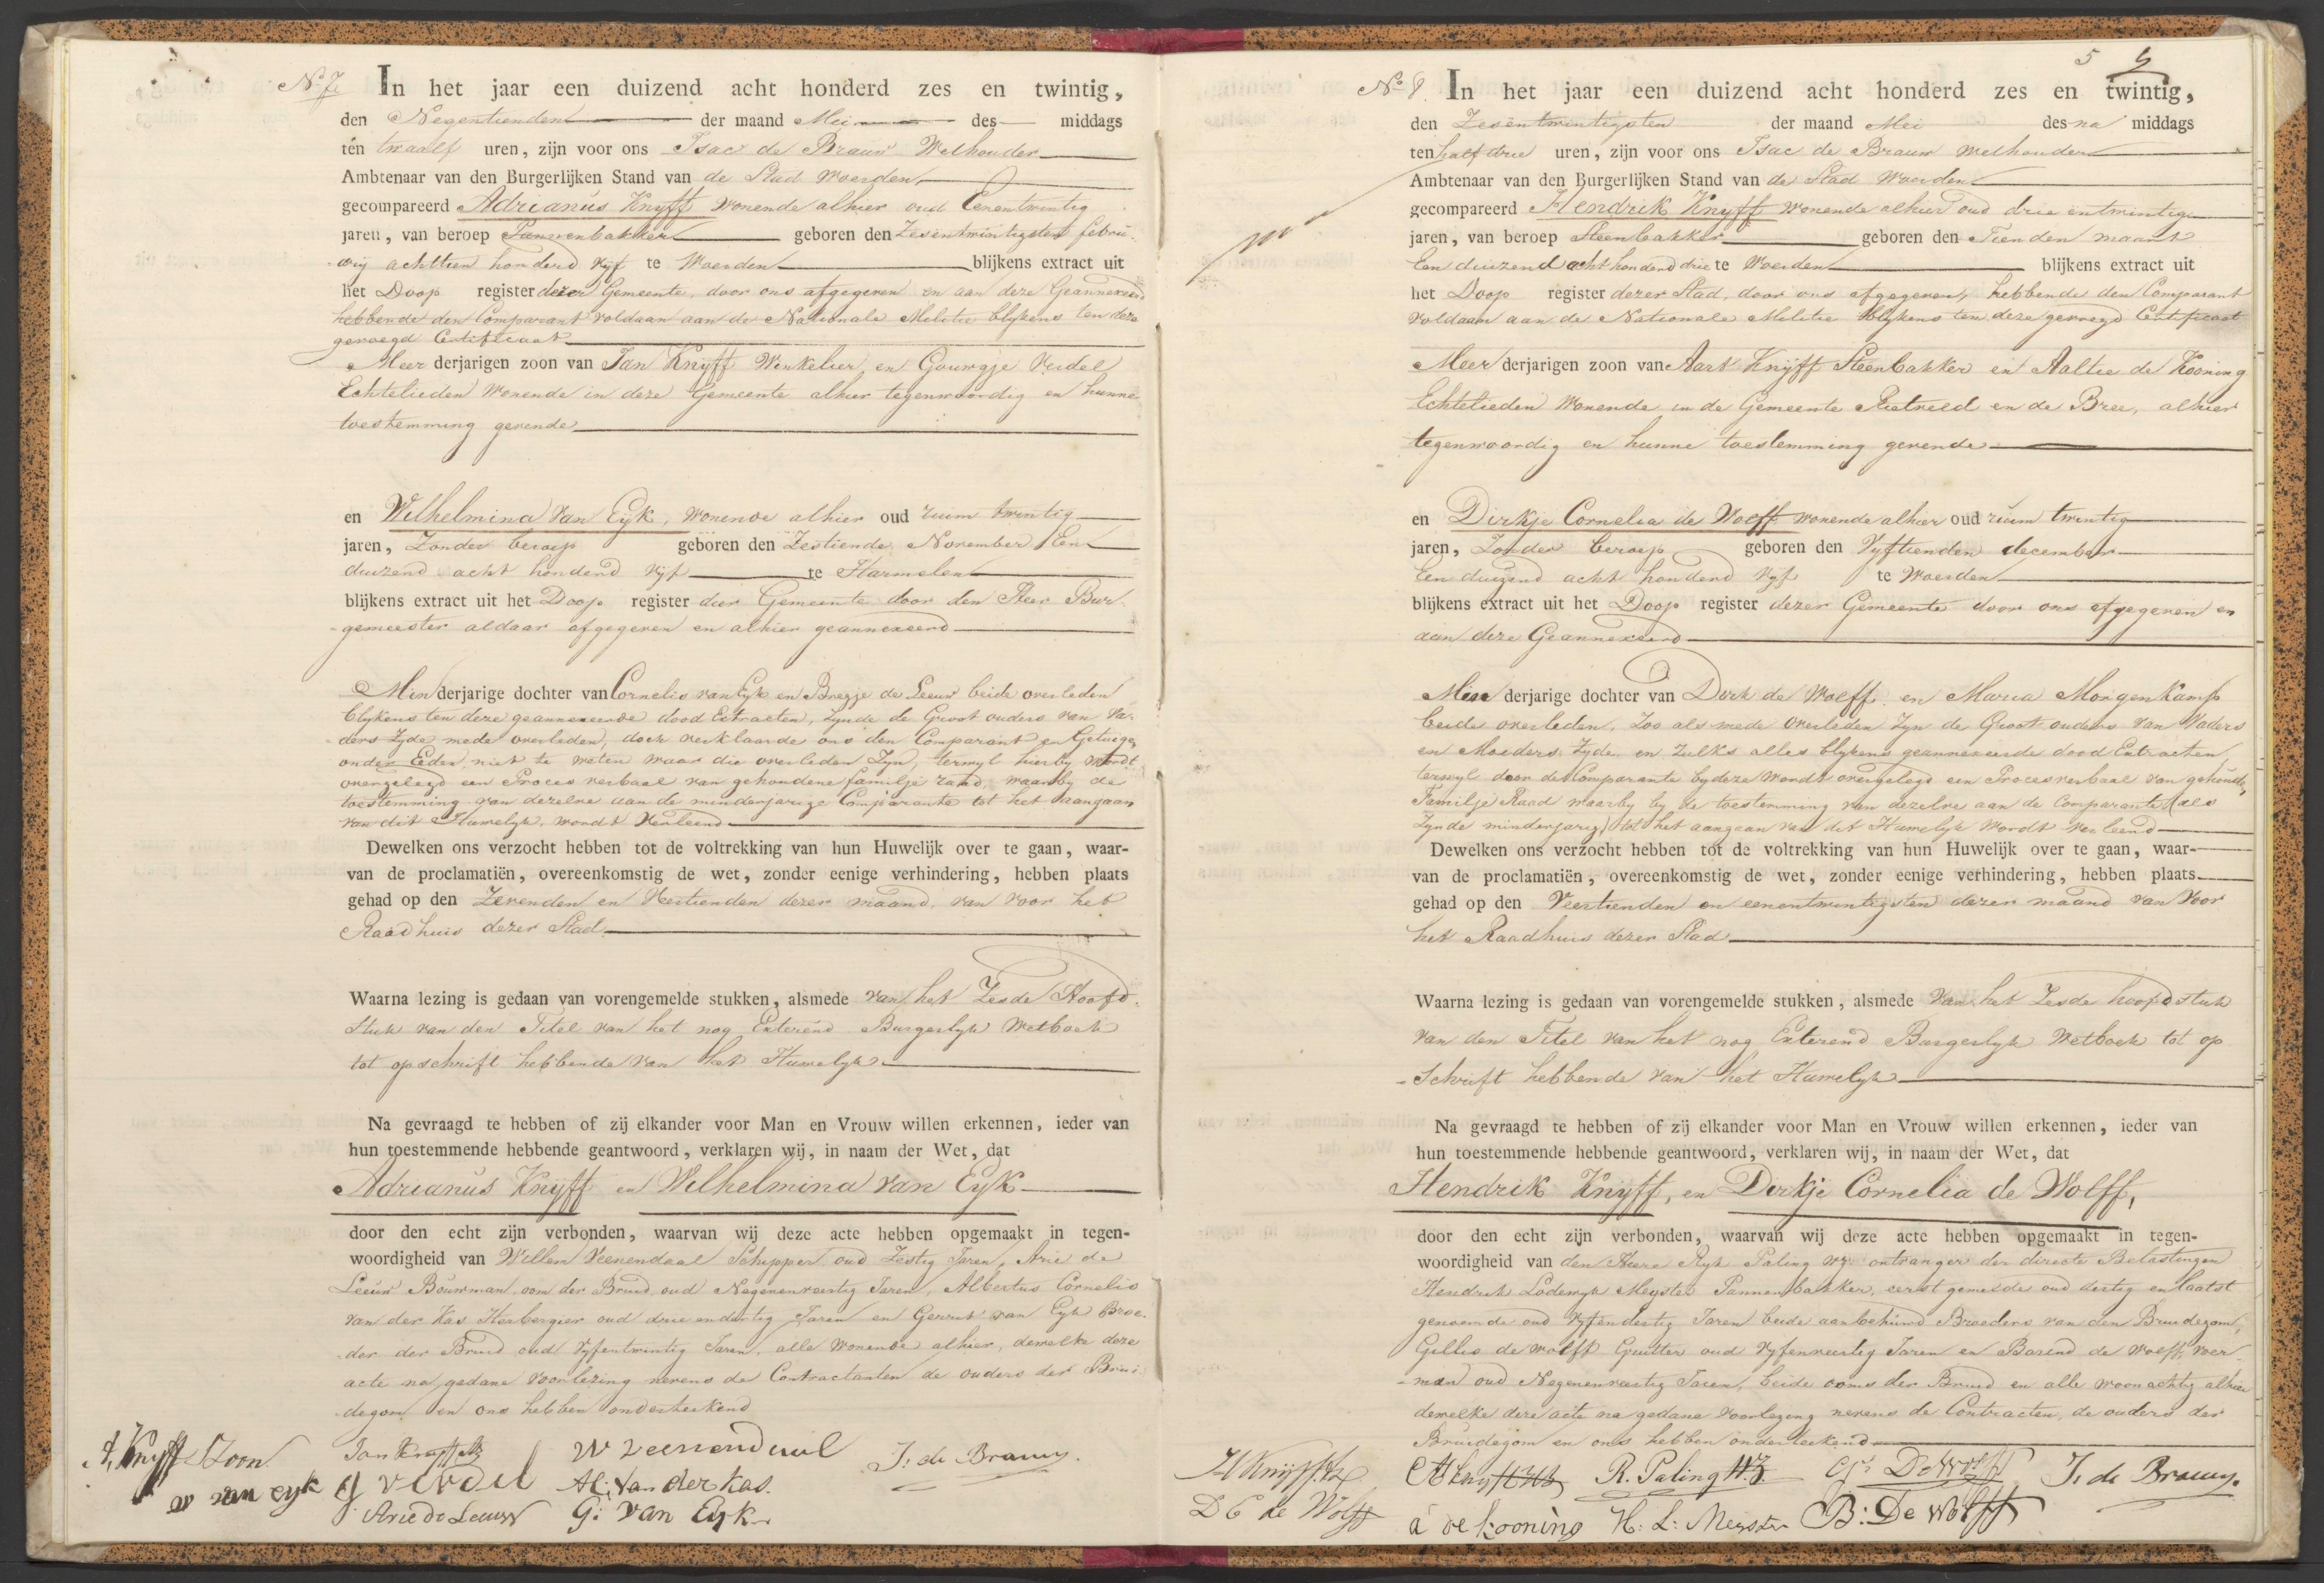 No 7. In het jaar een duizend acht honderd zes en twintig,
den Negentienden der maand Mei des middags
ten twaalf uren, zijn voor ons Isac de Brauw Wethouder
Ambtenaar van den Burgerlijken Stand van de Stad Woerden
gecompareerd Adrianus Knyff wonende alhier oud Eenentwintig
jaren, van beroep Pannenbakker geboren den Zesentwintigsten febru-
arij achttien honderd vyf te Woerden blijkens extract uit
het Doop register dezer Gemeente, door ons afgegeven en aan deze Geannexeerd
hebbende den Comparant voldaan aan de Nationale Militie blykens ten deze
gevoegd Certificaat
Meer derjarigen zoon van Jan Knyff Winkelier en Gouwgje Verdel
Echtelieden Wonende in deze Gemeente alhier tegenwoordig en hunne
toestemming gevende
en Wilhelmina van Eyk, wonende alhier oud ruim twintig
jaren, Zonder beroep geboren den Zestiende November Een
duizend acht honderd vyf te Harmelen
blijkens extract uit het Doop register dier Gemeente door den Heer Bur-
gemeester aldaar afgegeven en alhier geannexeerd
Min derjarige dochter van Cornelis van Eyk en Bregje de Leeuw beide overleden
blykens ten deze geannexeerde dood Extracten, zynde de Groot ouders van va-
ders Zyde mede overleden, doch verklaarde ons den Comparant en Getuigen
onder Eeden niet te weten waar die overleden Zyn, terwyl hierby wordt
overgelegd een Proces verbaal van gehoudene familje raad, waarby de
toestemming van dezelve aan de minderjarige Comparante tot het aangaan
van dit Huwelyk wordt verleend
Dewelken ons verzocht hebben tot de voltrekking van hun Huwelijk over te gaan, waar-
van de proclamatiën, overeenkomstig de wet, zonder eenige verhindering, hebben plaats
gehad op den Zevenden en Veertienden dezer maand, van voor het
Raadhuis dezer Stad
Waarna lezing is gedaan van vorengemelde stukken, alsmede van het Zesde Hoofd-
stuk van den Titel van het nog Exterend Burgerlyk Wetboek
tot opschrift hebbende van het Huwelyk
Na gevraagd te hebben of zij elkander voor Man en Vrouw willen erkennen, ieder van
hun toestemmende hebbende geantwoord, verklaren wij, in naam der Wet, dat
Adrianus Knyff en Wilhelmina van Eyk
door den echt zijn verbonden, waarvan wij deze acte hebben opgemaakt in tegen-
woordigheid van Willem Veenendaal Schipper oud Zestig Jaren, Arie de
Leeuw Bouwman, oom der Bruid, oud Negenenveertig Jaren, Albertus Cornelis
van der Kas Herbergier oud drie en dertig Jaren en Gerrit van Eyk Broe-
der der Bruid oud vyfentwintig Jaren, alle Wonende alhier, dewelke deze
acte na gedane Voorlezing nevens de Contractanten de ouders der Brui-
degom en ons hebben onderteekend
A, Knyff Jzoon
Jan Knyff
W Veenendaal
J: de Brauw.
w van eyk
g verdel
AC: van der kas.
Arie de Leeuw
G: van Eyk
5 6
No 8. In het jaar een duizend acht honderd zes en twintig,
den Zesentwintigsten der maand Mei des na middags
ten half drie uren, zijn voor ons Isac de Brauw wethouder
Ambtenaar van den Burgerlijken Stand van de Stad Woerden
gecompareerd Hendrik Knyff wonende alhier oud drie entwintig
jaren, van beroep Steenbakker geboren den Tienden maart
Een duizend acht honderd drie te Woerden blijkens extract uit
het Doop register dezer Stad, door ons afgegeven, hebbende den Comparant
voldaan aan de Nationale Militie blykens ten deze gevoegd Certificaat
Meer derjarigen zoon van Aart Knyff Steenbakker en Aaltie de Kooning
Echtelieden Wonende in de Gemeente Rietveld en de Bree, alhier
tegenwoordig en hunne toestemming gevende
en Dirkje Cornelia de Wolff wonende alhier oud ruim twintig
jaren, Zonder beroep geboren den Vyftienden december
Een duizend acht honderd vyf te Woerden
blijkens extract uit het Doop register dezer Gemeente door ons afgegeven en
aan deze Geannexeerd
Min derjarige dochter van Dirk de Wolff en Maria Morgenkamp
beide overleden, Zoo als mede Overleden Zyn de Groot ouders van Vaders
en Moeders Zyde en zulks alles blykens geannexeerde dood Extracten
terwyl door de Comparante by deze wordt overgelegd een Procesverbaal van gehoude,
Familje Raad waarby by de toestemming van dezelve aan de Comparante (als
Zynde minderjarig) tot het aangaan van dit Huwelyk wordt verleend
Dewelken ons verzocht hebben tot de voltrekking van hun Huwelijk over te gaan, waar-
van de proclamatiën, overeenkomstig de wet, zonder eenige verhindering, hebben plaats
gehad op den Veertienden en eenentwintigsten dezer maand van Voor
het Raadhuis dezer Stad
Waarna lezing is gedaan van vorengemelde stukken, alsmede van het Zesde hoofdstuk
van den Titel van het nog Exterend Burgerlyk Wetboek tot op
-Schrift hebbende van het Huwelyk
Na gevraagd te hebben of zij elkander voor Man en Vrouw willen erkennen, ieder van
hun toestemmende hebbende geantwoord, verklaren wij, in naam der Wet, dat
Hendrik Knyff, en Dirkje Cornelia de Wolff,
door den echt zijn verbonden, waarvan wij deze acte hebben opgemaakt in tegen-
woordigheid van den Heere Ryk Paling Wz: ontvanger der directe Belastingen
Hendrik Lodewyk Meyster Pannenbakker, eerst gemelde oud dertig en laatst
genoemde oud vyfendertig Jaren beide aanbehuwd Broeders van den Bruidegom,
Gillis de Wolff Grutter oud vyfenveertig Jaren en Barend de Wolff, voer
-man oud Negenenveertig Jaren, beide ooms der Bruid en alle woonachtig alhier
dewelke deze acte na gedane voorlezing nevens de Contracten, de ouders der
Bruidegom en ons hebben onderteekend
H Knijff
R. Paling Wz
Gs De Wolff
J. de Brauw.
D C de Wolff
a de kooning
H: L: Meyster
B: De Wolff